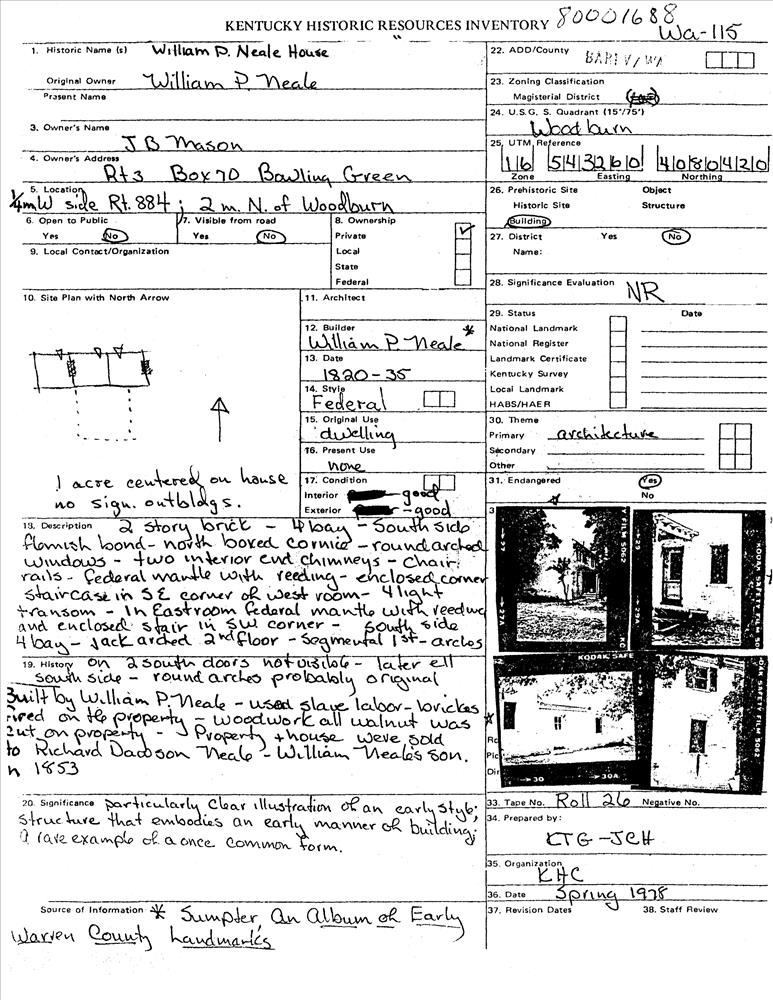 KENTUCKY HISTORIC RESOURCES INVENTORY 80001688
Wa-115
1. Historic Name (s) William P. Neale House
Original Owner William P. Neale
Present Name
3. Owner's Name
J B Mason
4. Owner's Address
Rt 3 Box 70 Bowling Green
5. Location
1/4 m W side Rt. 884; 2 m. N. of Woodburn
6. Open to Public
Yes No
7. Visible from road
Yes No
8. Ownership
Private
Local
State
Federal
9. Local Contact/Organization
10. Site Plan with North Arrow
1 acre centered on house
no sign. outbldgs.
11. Architect
12. Builder *
William P. Neale
13. Date
1820-35
14. Style
Federal
15. Original Use
dwelling
16. Present Use
none
17. Condition
Interior good
Exterior - good
Description 2 story brick - 4 bay - South side
flemish bond - north boxed cornice - round arched
windows - two interior end chimneys - chair
rails - federal mantle with reeding - enclosed corner
staircase in SE corner of west room - 4 light
transom - In East room federal mantle with reeding
and enclosed stair in SW corner - south side
4 bay - jack arched 2nd floor - segmental 1st - arches
19. History on 2 south doors not visible - later ell
south side - round arches probably original
Built by William P. Neale - used slave labor - brickes
fired on the property - woodwork all walnut was
cut on property - Property + house were sold
to Richard Dawson Neale - William Neale's son.
n 1853
20. Significance particularly clear illustration of an early style;
structure that embodies an early manner of building;
a rare example of a once common form.
Source of Information * Sumpter, An Album of Early
Warren County Landmarks
22. ADD/County
23. Zoning Classification
Magisterial District
24. U.S.G. S. Quadrant (15'/75')
Woodburn
25. UTM Reference
16 543260 4080420
Zone Easting Northing
26. Prehistoric Site Object
Historic Site Structure
Building
27. District Yes No
Name:
28. Significance Evaluation NR
29. Status Date
National Landmark
National Register
Landmark Certificate
Kentucky Survey
Local Landmark
HABS/HAER
30. Theme
Primary architecture
Secondary
Other
31. Endangered Yes
No
3
Y FILM 5062
KODAK SAFE
KODAK SAFETY FILM 5062
30 30A
Ro
Pic
Dir
33. Tape No. Roll 26 Negative No.
34. Prepared by:
KTG-JCH
35. Organization
KHC
36. Date Spring 1978
37. Revision Dates 38. Staff Review